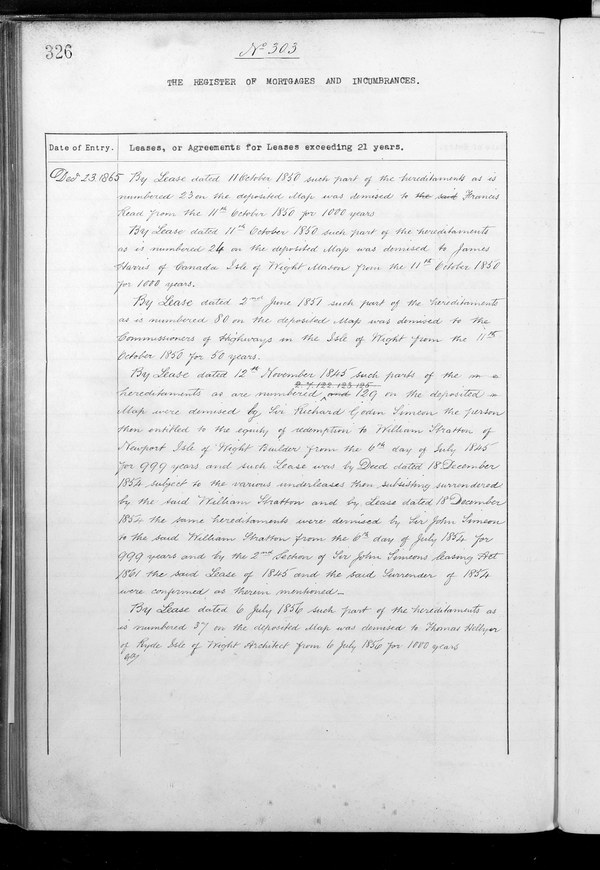 326
No 303
THE REGISTER OF MORTGAGES AND INCUMBRANCES.
Date of Entry.
Leases, or Agreements for Leases exceeding 21 years.
Decr 23. 1865
By Lease dated 11 October 1850 such part of the hereditaments as is
numbered 23 on the deposited Map was demised to the said Francis
Read from the 11th October 1850 for 1000 years
By Lease dated 11th October 1850 such part of the hereditaments
as is numbered 24 on the deposited Map was demised to James
Harris of Canada Isle of Wight Mason from the 11th October 1850
for 1000 years.
By Lease dated 2nd June 1851 such part of the hereditaments
as is numbered 80 on the deposited Map was demised to the
Commissioners of Highways in the Isle of Wight from the 11th
October 1850 for 50 years.
By Lease dated 12th November 1845 such parts of the
122 123 125
hereditaments as are numbered and 129 on the deposited
Map were demised by Sir Richard Godin Simeon the person
then entitled to the equity of redemption to William Stratton of
Newport Isle of Wight Builder from the 6th day of July 1845
for 999 years and such Lease was by Deed dated 18 December
1854 subject to the various underleases then subsisting surrendered
by the said William Stratton and by Lease dated 18 December
1854 the same hereditaments were demised by Sir John Simeon
to the said William Stratton from the 6th day of July 1854 for
999 years and by the 2nd Section of Sir John Simeons leasing Act
1861 the said Lease of 1845 and the said Surrender of 1854
were confirmed as therein mentioned
By Lease dated 6 July 1856 such part of the hereditaments as
is numbered 37 on the deposited Map was demised to Thomas Hellyer
of Ryde Isle of Wight Architect from 6 July 1856 for 1000 years